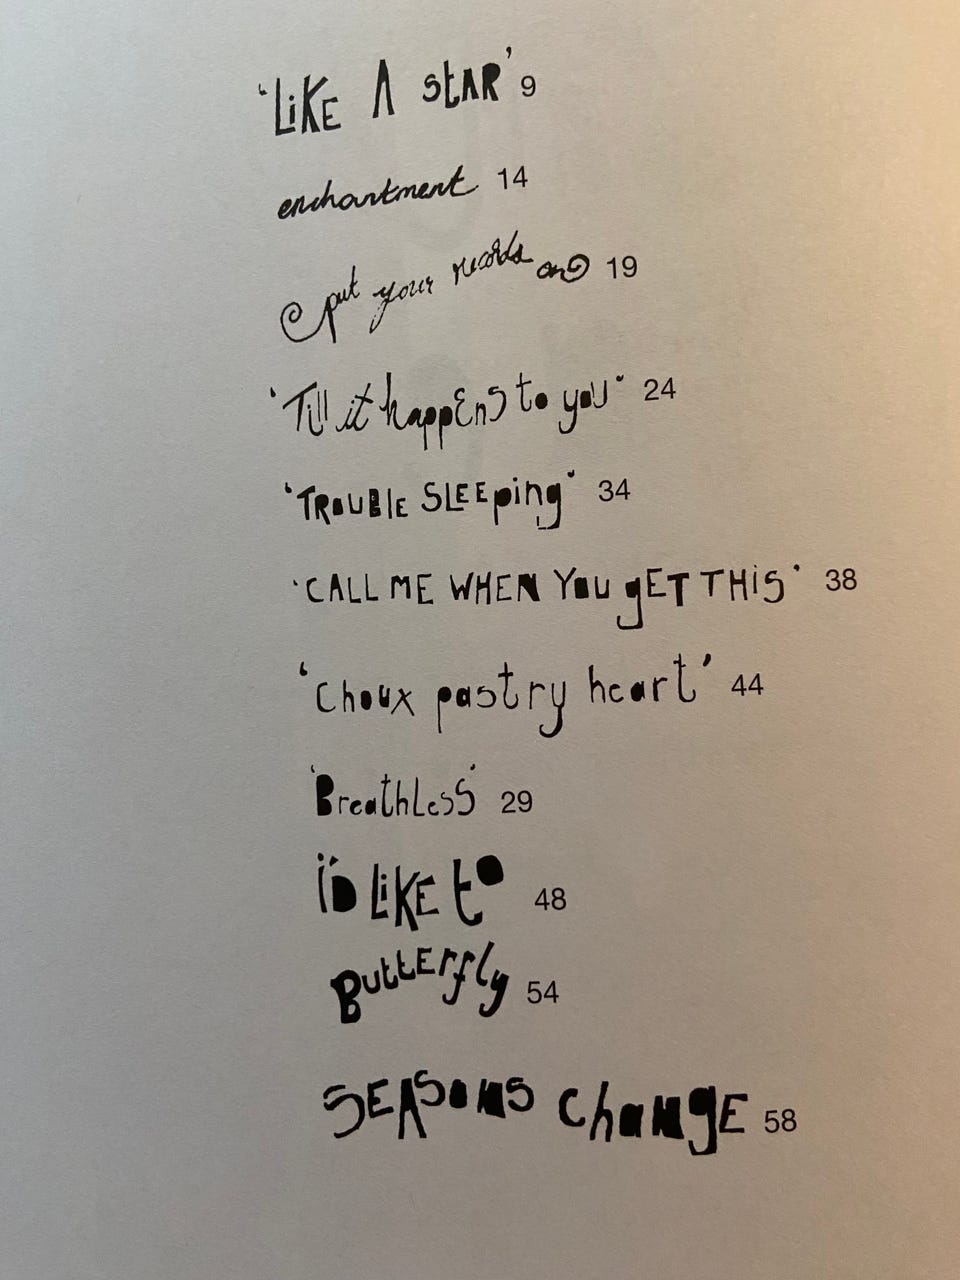 'LiKE A StAR' 9
enchantment 14
put your records on 19
'Till it happEnS to you' 24
'TROUBlE SLEEping' 34
'CALL ME WHEN YOU gET THiS' 38
'Choux pastry heart' 44
'BreathLesS' 29
i'D LiKE to 48
ButtErfly 54
SEASONS ChaNgE 58